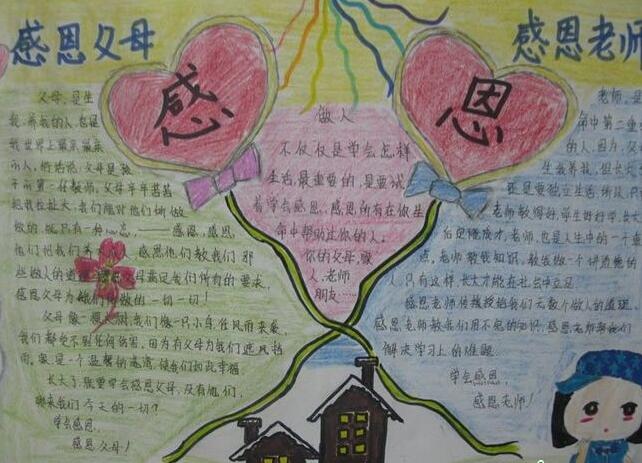 感恩父母
感 恩
感恩老师
父母,是生
我,养我的人,也是
我世界上最亲最亲
的人,俗话说:父母是孩
子的第一任教师,父母辛辛苦苦
把我拉扯大,我们能对他们所做
做的,就只有一种心态,——感恩,感恩
他们把我们 感恩他们教我们那
些做人的道理,感恩父母满足我们所有的要求,
感恩父母为我们所做的一切一切!
父母像一棵大树,我们像一只小鸟,任风雨来袭,
我们都受不到任何伤害,因为有父母为我们遮风挡
雨。像是一个温馨的港湾,使我们如此幸福
长大了,我要学会感恩父母,没有他们,
哪来我们今天的一切?
学会感恩,
感恩父母!
做人
不仅仅是学会怎样
生活,最重要的,是要试
着学会感恩,感恩所有在你生
命中帮助过你的人。
你的父母,家
人,老师
朋友……
老师,是
命中第二重
的人,因为,父
生我养我,但长大
还是要独立生活,所以,
老师教得好,学生好好学,长大
后定能成才,老师,也是人生中的一个
点,老师教我知识,教我做一个讲道德的
人,只有这样,长大才能在社会中立足
感恩老师传授给我们无数个做人的道理,
感恩老师教我们用不完的知识,感恩老师帮我们
解决学习上的难题
学会感恩,
感恩老师!